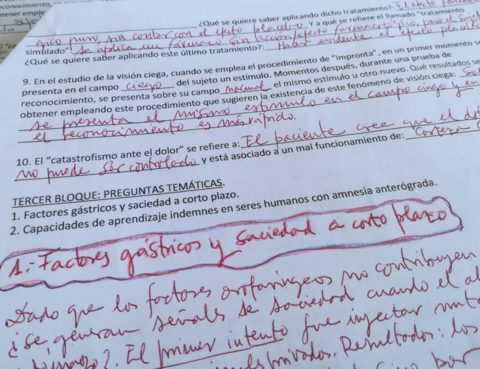 ¿Qué se quiere saber aplicando dicho tratamiento? El efecto
puro sin contar con el efecto placebo Y a qué se refiere el llamado "tratamiento
simulado" Se aplica un fármaco sin
¿Qué se quiere saber aplicando este último tratamiento?: el efecto placebo
9. En el estudio de la visión ciega, cuando se emplea el procedimiento de "impronta", en un primer momento s
presenta en el campo ciego del sujeto un estímulo. Momentos después, durante una prueba de
reconocimiento, se presenta sobre su campo normal el mismo estímulo u otro nuevo. Qué resultados se
obtener empleando este procedimiento que sugieren la existencia de este fenómeno de visión ciega:
se presenta el mismo estímulo en el campo ciego y en
el reconocimiento es más rápido.
10. El "catastrofismo ante el dolor" se refiere a: El paciente cree que el do
no puede ser controlado y está asociado a un mal funcionamiento de: Corteza
TERCER BLOQUE: PREGUNTAS TEMÁTICAS.
1. Factores gástricos y saciedad a corto plazo.
2. Capacidades de aprendizaje indemnes en seres humanos con amnesia anterógrada.
1.- Factores gástricos y saciedad a corto plazo
Dado que los factores orofaríngeos no contribuyen
¿se generan señales de saciedad cuando el al
El primer intento fue inyectar nut
Resultados: los
por